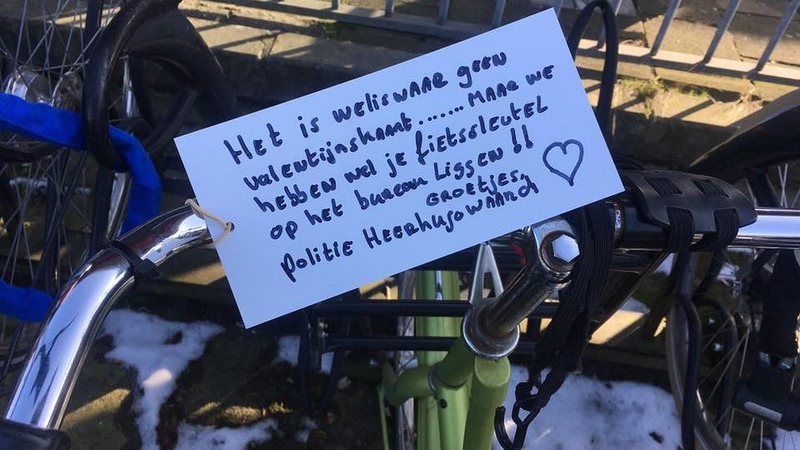 Het is weliswaar geen
valentijnskaart....... maar we
hebben wel je fietssleutel
op het bureau liggen!!
Groetjes,
Politie Heerhugowaard